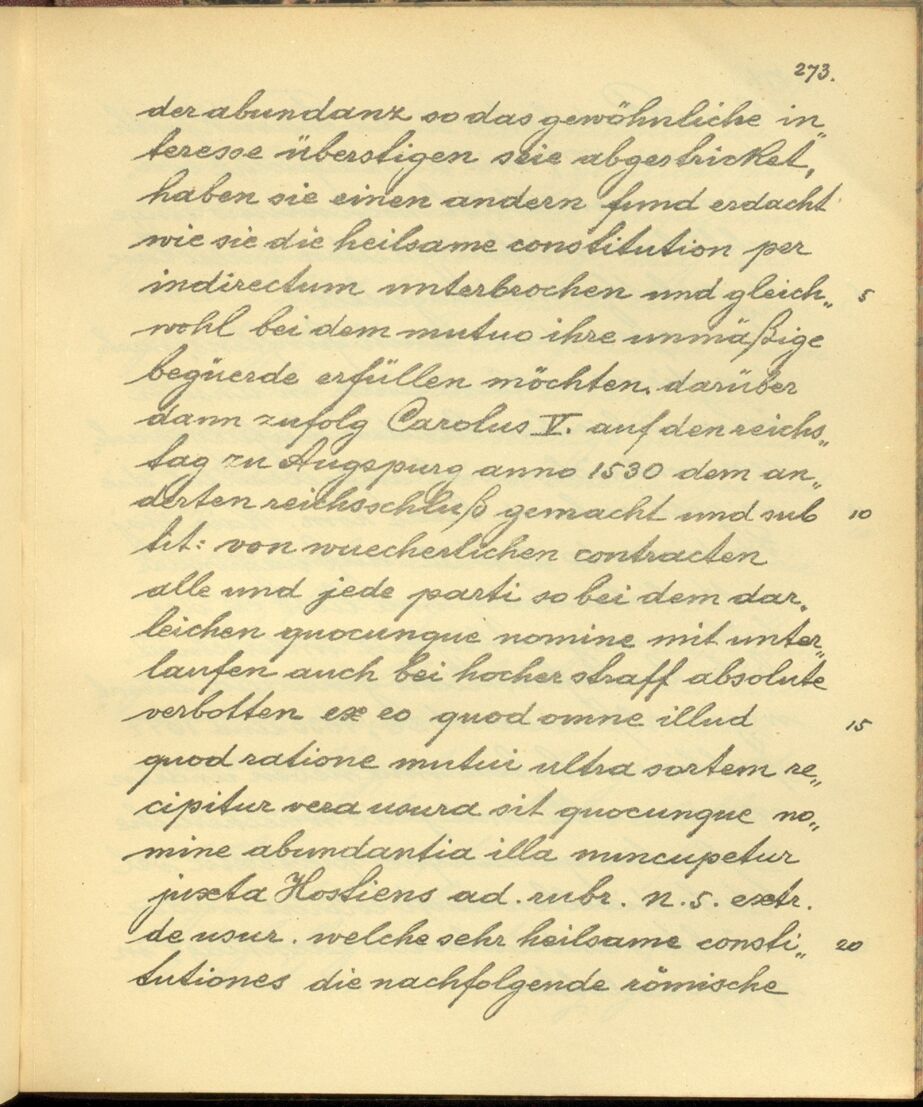 273.
der abundanz so das gewöhnliche in„
teresse überstigen seie abgestricket,
haben sie einen andern fund erdacht
wie sie die heilsame constitution per
indirectum unterbrochen und gleich„ 5
wohl bei dem mutuo ihre unmäßige
begüerde erfüllen möchten. darüber
dann zufolg Carolus V. auf den reichs„
tag zu Augspurg anno 1530 dem an„
derten reichsschluß gemacht und sub 10
tit: von wuecherlichen contracten
alle und jede parti so bei dem dar„
leichen quocunque nomine mit unter„
laufen auch bei hocher straff absolute
verbotten ex eo quod omne illud 15
quod ratione mutui ultra sortem re„
cipitur vera usura sit quocunque no„
mine abundantia illa nuncupetur
juxta Hostiens ad. rubr. n. 5. extr.
de usur. welche sehr heilsame consti„ 20
tutiones die nachfolgende römische